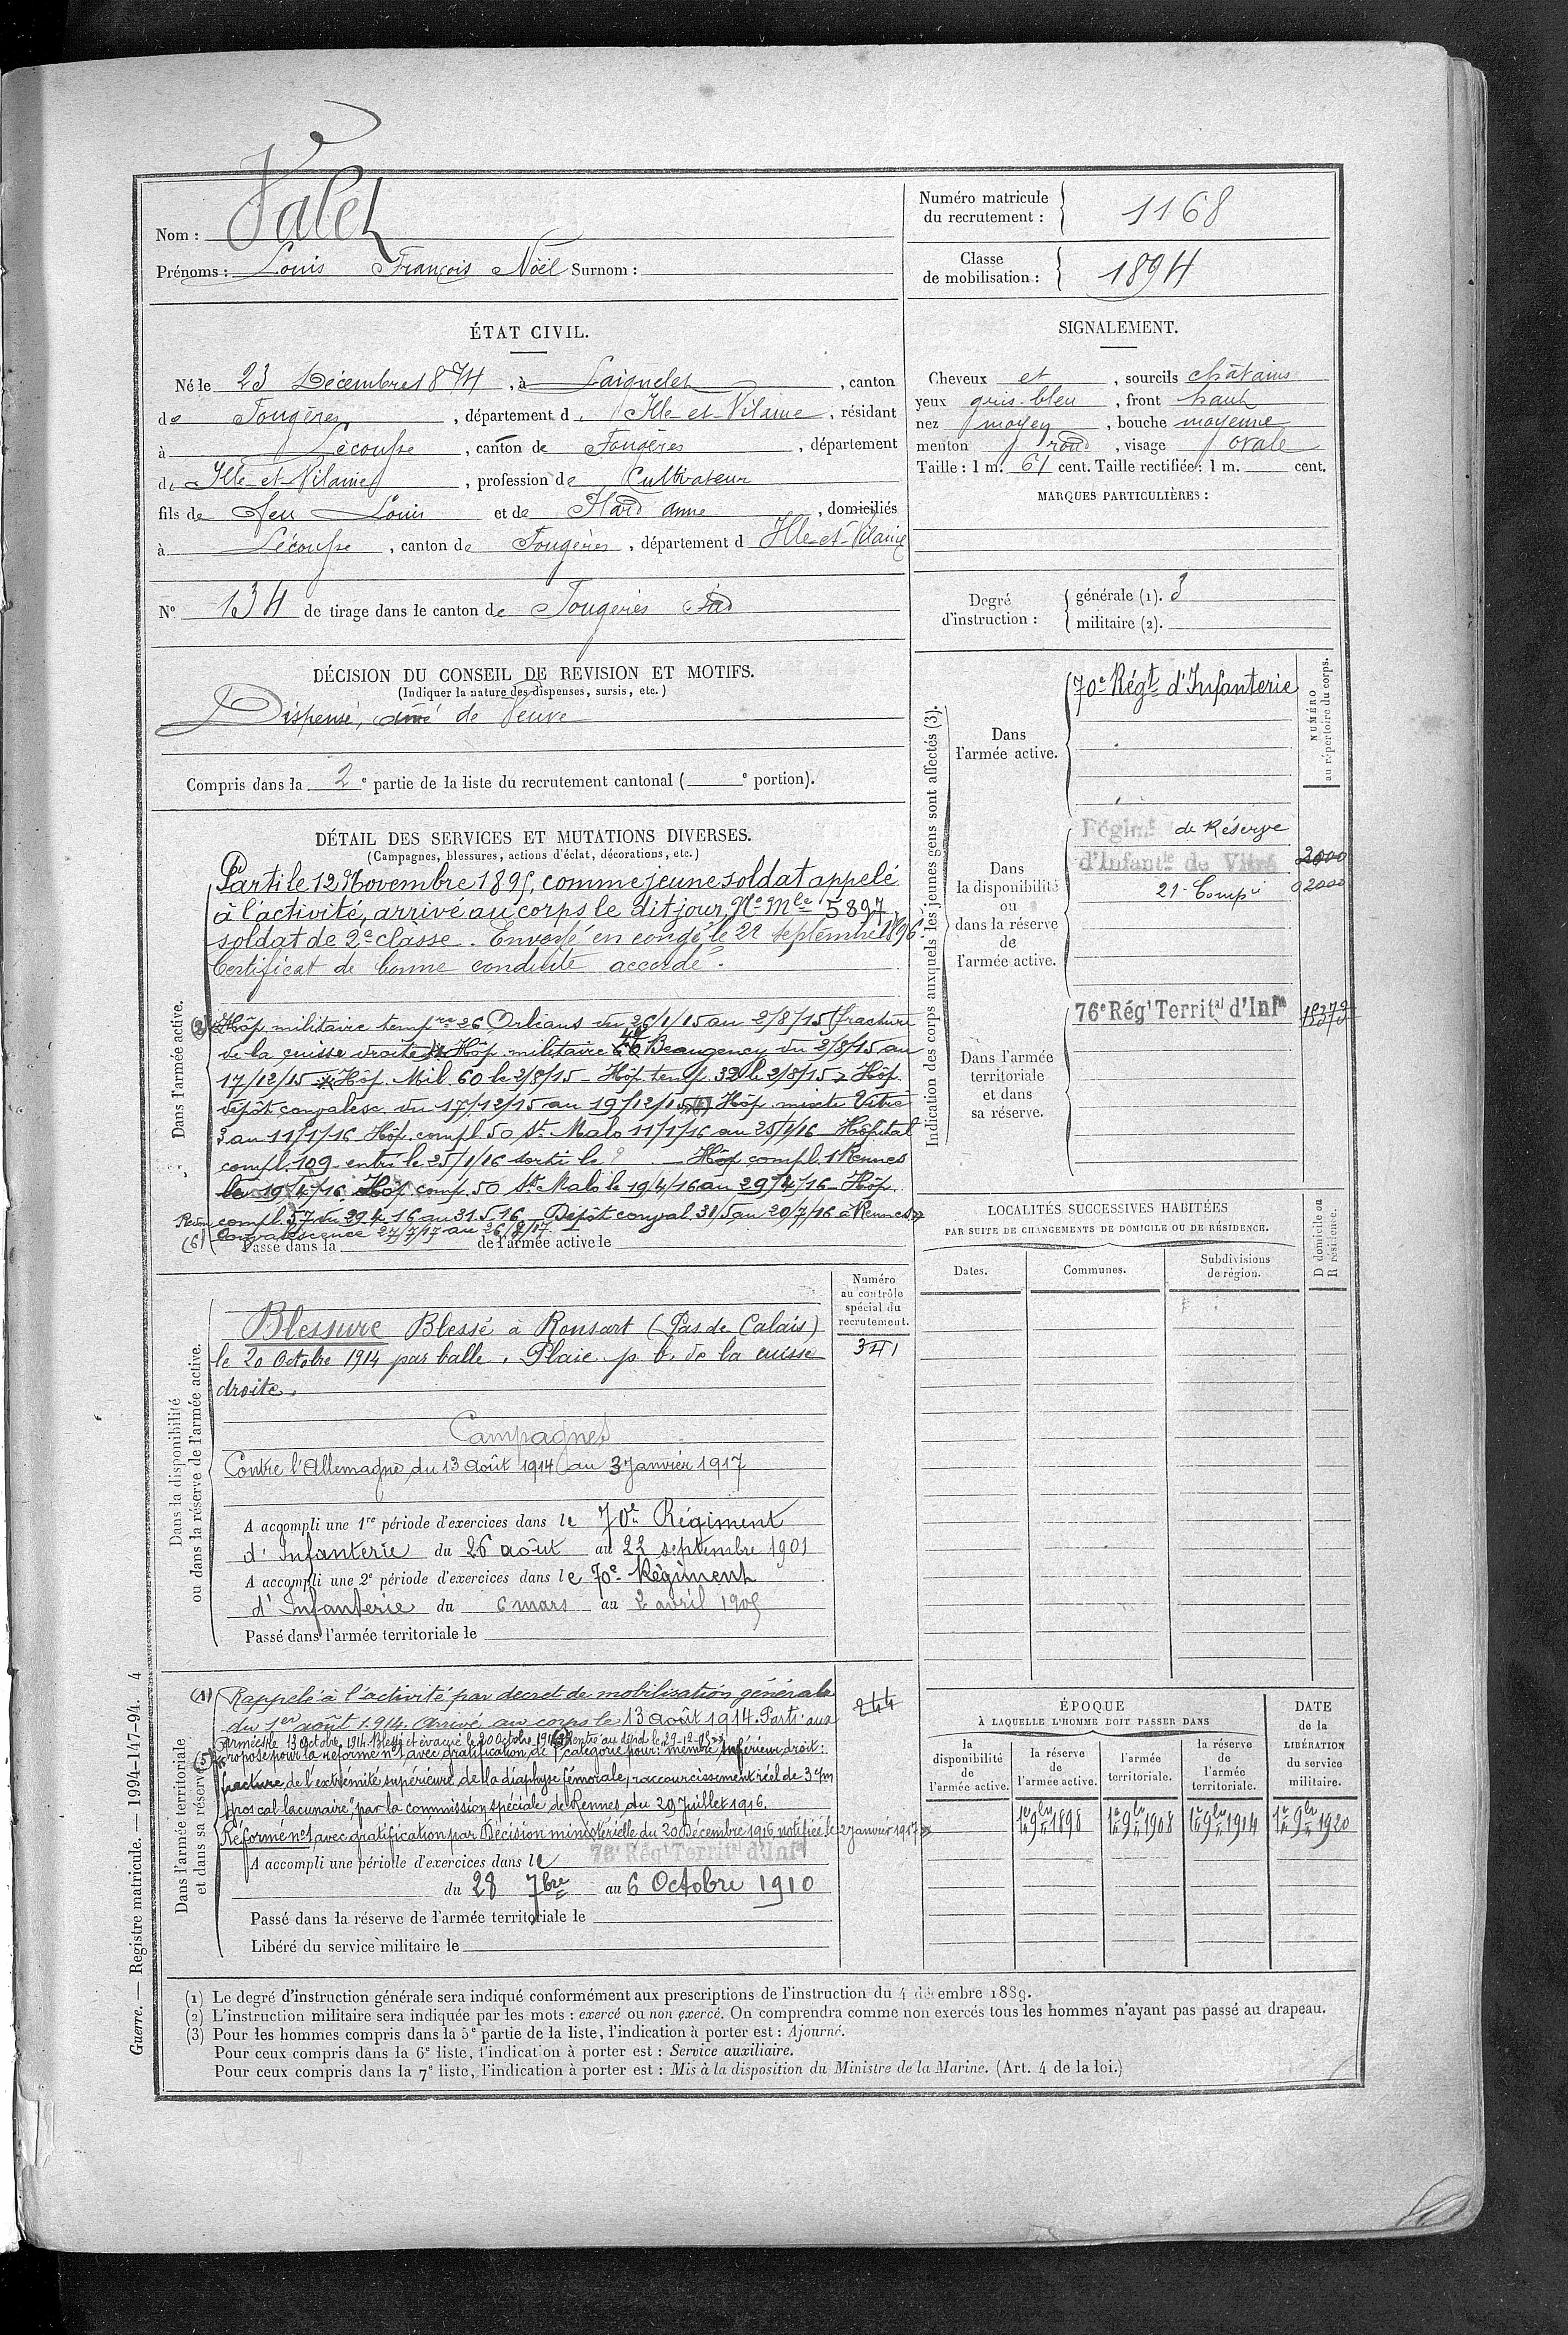 Nom : Valet
Prénoms : Louis François Noël Surnom :
Numéro matricule
du recrutement : 1168
Classe
de mobilisation : 1894
ÉTAT CIVIL.
Né le 23 Décembre 1874, à Laignelet, canton
de Fougères, département d Ille-et-Vilaine, résidant
à Lécousse, canton de Fougères, département
de Ille-et-Vilaine, profession de Cultivateur
fils de feu Louis et de Hard Anne, domiciliés
à Lécousse, canton de Fougères, département d Ille-et-Vilaine
N° 134 de tirage dans le canton de Fougères Sud
SIGNALEMENT.
Cheveux et, sourcils châtains
yeux gris-bleu, front haut
nez moyen, bouche moyenne
menton rond, visage ovale
Taille : 1 m. 61 cent. Taille rectifiée : 1 m. cent.
MARQUES PARTICULIÈRES :
Degré
d'instruction :
générale (1). 3
militaire (2).
DÉCISION DU CONSEIL DE REVISION ET MOTIFS.
(Indiquer la nature des dispenses, sursis, etc.)
Dispensé, aîné de Veuve
Compris dans la 2e partie de la liste du recrutement cantonal ( e portion).
DÉTAIL DES SERVICES ET MUTATIONS DIVERSES.
(Campagnes, blessures, actions d'éclat, décorations, etc.)
Dans l'armée active.
Parti le 12 Novembre 1895, comme jeune soldat appelé
à l'activité, arrivé au corps le dit jour, No Mle 5897,
soldat de 2e classe. Envoyé en congé le 22 septembre 1896.
Certificat de bonne conduite accordé.
(2) Hôp militaire tempre 26 Orléans du 26/1/15 au 2/8/15 (fracture
de la cuisse droite Hôp. militaire 46 Beaugency du 2/8/15 au
17/12/15 Hôp. Mil 60 le 2/8/15 - Hôp temp. 39 le 2/8/15 Hôp.
dépôt convalesc. du 17/12/15 au 19/12/15 Hôp mixte Vitré
3 au 11/1/16 Hôp. compl 50 St Malo 11/1/16 au 25/1/16 - Hôpital
compl. 109 entré le 25/1/16 sorti le ? - Hôp compl. 1 Rennes
le 19/4/16 Hôp comp. 50 St Malo le 19/4/16 au 29/4/16 - Hôp.
compl. 37 du 29.4.16 au 31.5.16 - Dépôt conval. 31/5 au 20/7/16 à Rennes
(6) convalescence 27/7/17 au 26/8/17
Passé dans la de l'armée active le
Indication des corps auxquels les jeunes gens sont affectés (3).
NUMÉRO
au répertoire du corps.
Dans
l'armée active.
70e Régt d'Infanterie
Dans
la disponibilité
ou
dans la réserve
de
l'armée active.
Régimt de Réserve
d'Infantie de Vitré 2000
21e Compie 02000
Dans l'armée
territoriale
et dans
sa réserve.
76e Régt Territal d'Infie
Dans la disponibilité
ou dans la réserve de l'armée active.
Numéro
au contrôle
spécial du
recrutement.
341
Blessure Blessé à Ronsart (Pas de Calais)
le 20 Octobre 1914 par balle. Plaie p. b. de la cuisse
droite.
Campagnes
Contre l'Allemagne du 13 août 1914 au 3 janvier 1917
A accompli une 1re période d'exercices dans le 70e Régiment
d'Infanterie du 26 août au 22 septembre 1901
A accompli une 2e période d'exercices dans le 70e Régiment
d'Infanterie du 6 mars au 2 avril 1905
Passé dans l'armée territoriale le
LOCALITÉS SUCCESSIVES HABITÉES
PAR SUITE DE CHANGEMENTS DE DOMICILE OU DE RÉSIDENCE.
Dates. Communes. Subdivisions
de région.
D domicile ou
R résidence.
Dans l'armée territoriale
et dans sa réserve.
244
(1) Rappelé à l'activité par décret de mobilisation générale
du 1er août 1914. Arrivé au corps le 13 août 1914. Parti aux
armées le 13 octobre 1914. Blessé et évacué le 20 octobre 1914 Rentré au dépôt le 29-12-15
(5) Proposé pour la réforme n°1 avec gratification de catégorie pour : membre inférieur droit :
fracture de l'extrémité supérieure de la diaphyse fémorale, raccourcissement réel de 3 c/m
gros cal lacunaire", par la commission spéciale de Rennes du 29 Juillet 1916.
Réformé n°1 avec gratification par Décision ministérielle du 20 Décembre 1916 notifiée le 2 janvier 1917
A accompli une période d'exercices dans le 76e Régt Territal d'Infie
du 28 7bre au 6 Octobre 1910
Passé dans la réserve de l'armée territoriale le
Libéré du service militaire le
ÉPOQUE
À LAQUELLE L'HOMME DOIT PASSER DANS
la
disponibilité
de
l'armée active.
la réserve
de
l'armée active.
l'armée
territoriale.
la réserve
de
l'armée
territoriale.
DATE
de la
LIBÉRATION
du service
militaire.
1er 9bre 1898 1er 9bre 1908 1er 9bre 1914 1er 9bre 1920
(1) Le degré d'instruction générale sera indiqué conformément aux prescriptions de l'instruction du 4 décembre 1889.
(2) L'instruction militaire sera indiquée par les mots : exercé ou non exercé. On comprendra comme non exercés tous les hommes n'ayant pas passé au drapeau.
(3) Pour les hommes compris dans la 5e partie de la liste, l'indication à porter est : Ajourné.
Pour ceux compris dans la 6e liste, l'indication à porter est : Service auxiliaire.
Pour ceux compris dans la 7e liste, l'indication à porter est : Mis à la disposition du Ministre de la Marine. (Art. 4 de la loi.)
Guerre. — Registre matricule. — 1994-147-94. 4